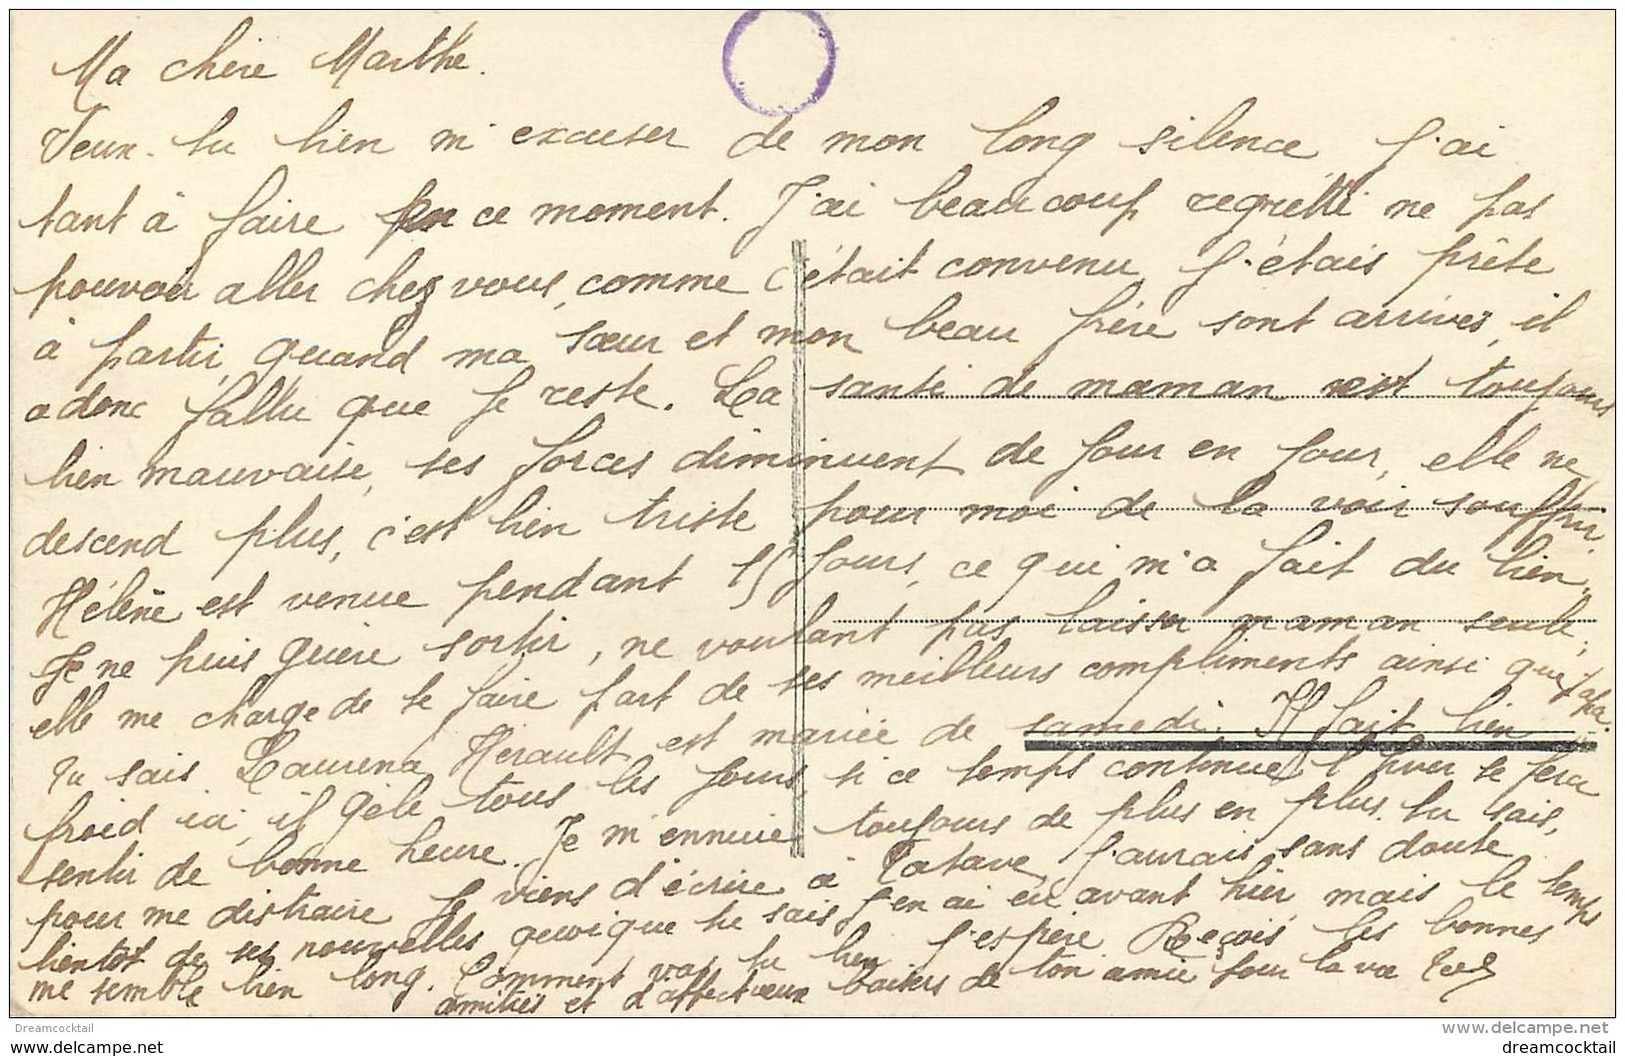 Ma chère Marthe.
Veux-tu bien m'excuser de mon long silence, j'ai
tant à faire en ce moment. J'ai beaucoup regretté ne pas
pouvoir aller chez vous, comme c'était convenu, j'étais prête
à partir, quand ma sœur et mon beau frère sont arrivés, il
a donc fallu que je reste. La santé de maman est toujours
bien mauvaise, ses forces diminuent de jour en jour, elle ne
descend plus, c'est bien triste pour moi de la voir souffrir.
Hélène est venue pendant 15 jours, ce qui m'a fait du bien.
Je ne puis guère sortir, ne voulant pas laisser maman seule,
elle me charge de te faire part de ses meilleurs compliments ainsi que papa.
Tu sais Laurena Hérault est mariée de samedi. Il fait bien
froid ici, il gèle tous les jours, si ce temps continue l'hiver se fera
sentir de bonne heure. Je m'ennuie toujours de plus en plus. tu sais,
pour me distraire je viens d'écrire à Tatave, j'aurais sans doute
bientôt de ses nouvelles quoique tu sais j'en ai eu avant hier mais le temps
me semble bien long. Comment vas tu bien j'espère. Reçois les bonnes
amitiés et d'affectueux baisers de ton amie pour la vie
Dreamcocktail
www.delcampe.net
www.dreamcocktail.com
dreamcocktail